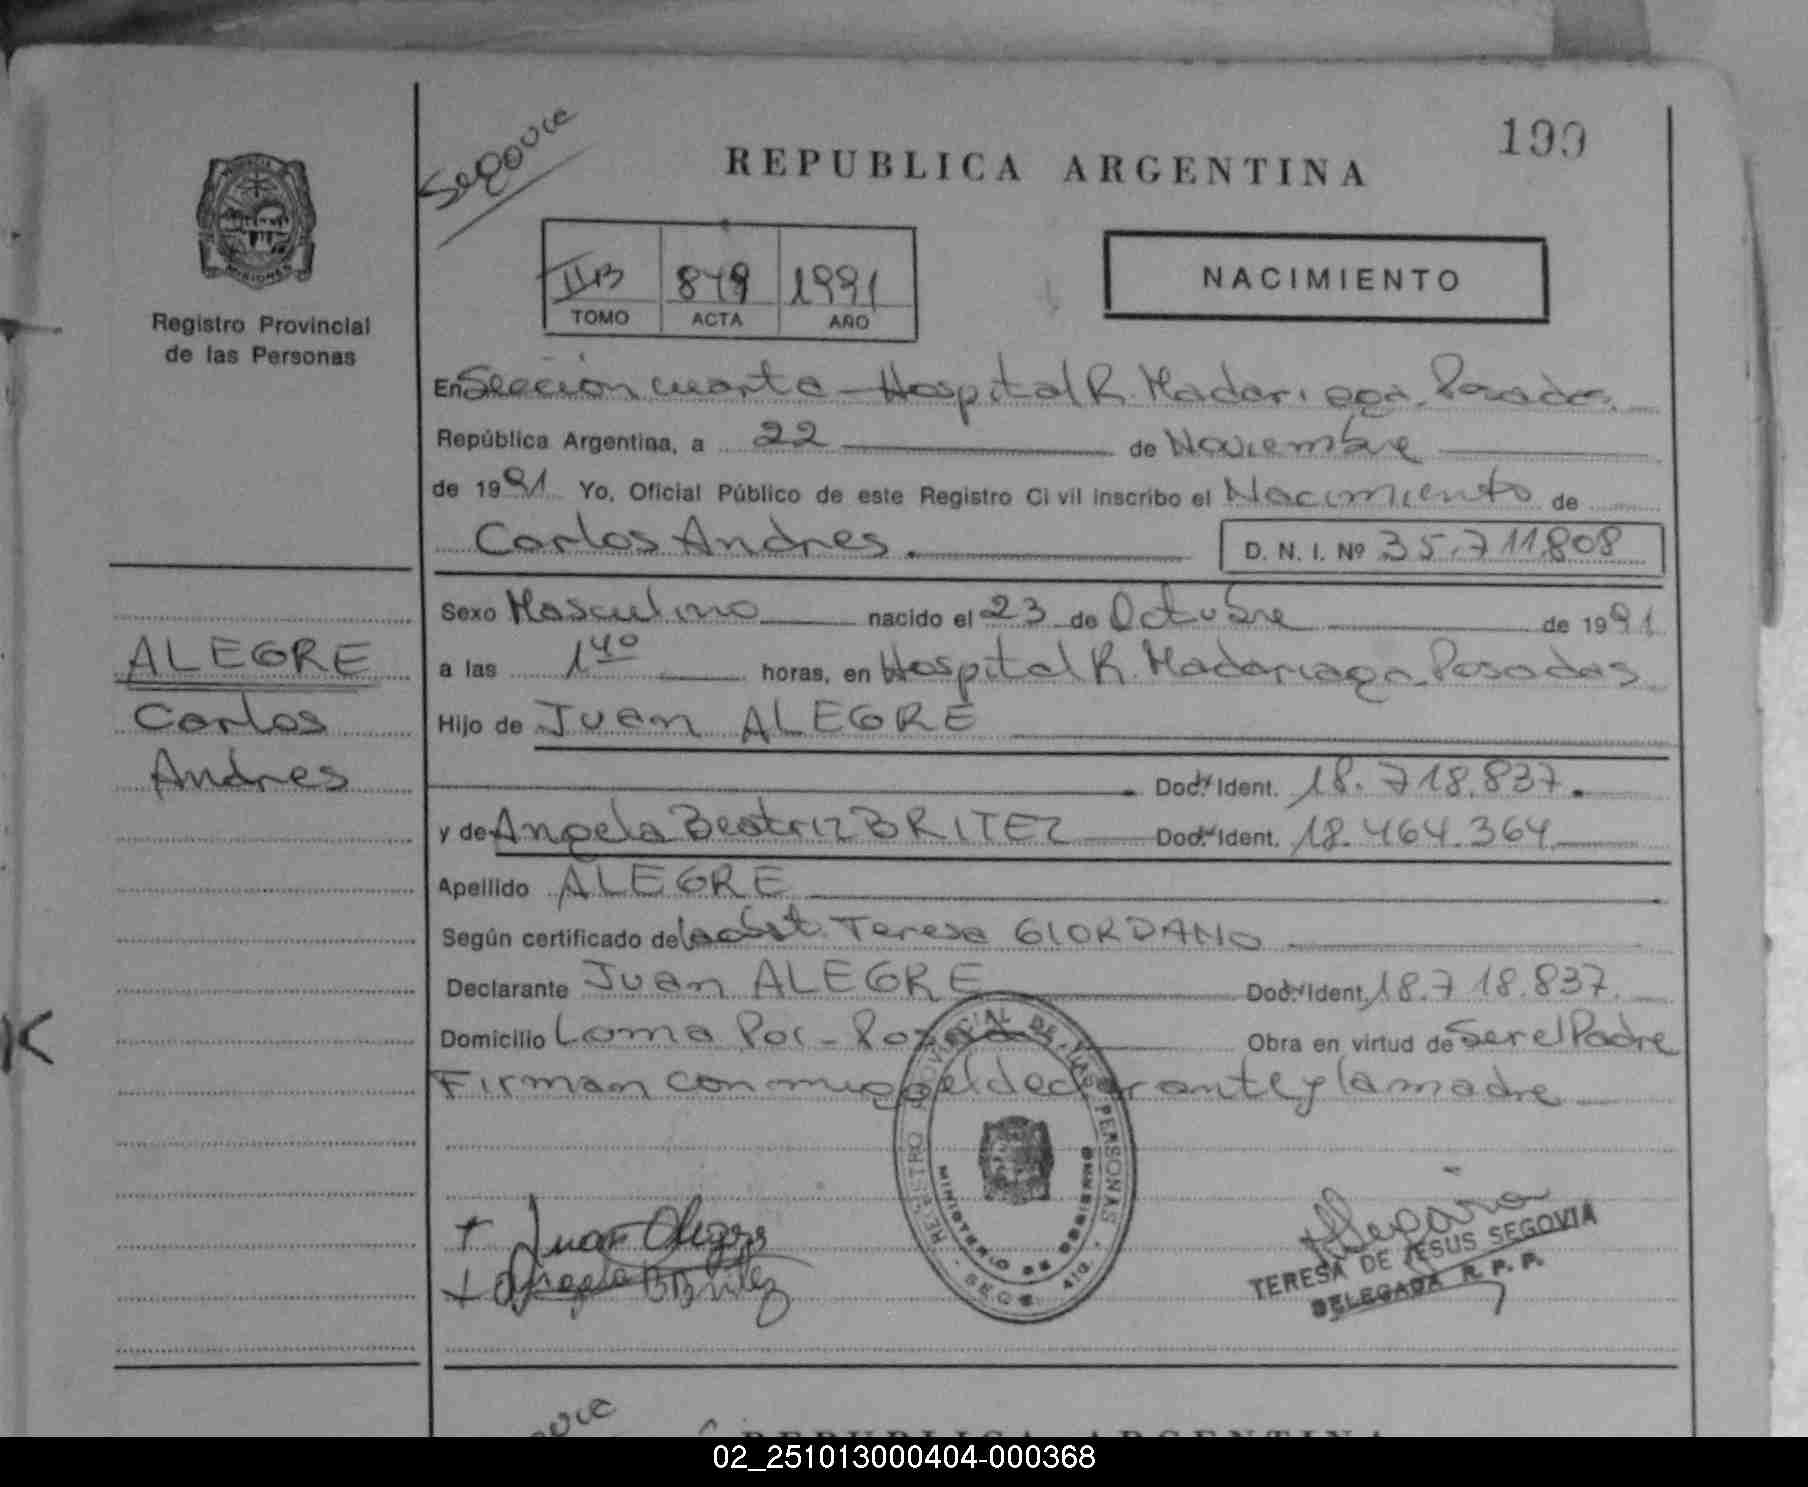 Segovia
REPUBLICA ARGENTINA
199
PROVINCIA
MISIONES
Registro Provincial
de las Personas
IIB 849 1991
TOMO ACTA AÑO
NACIMIENTO
En Sección cuarta - Hospital R. Madariaga Posadas
República Argentina, a 22 de Noviembre
de 1991 Yo, Oficial Público de este Registro Civil inscribo el Nacimiento de
Carlos Andres. D. N. I. Nº 35.711.808
Sexo Masculino nacido el 23 de Octubre de 1991
a las 1 40 horas, en Hospital R. Madariaga Posadas
Hijo de Juan ALEGRE
Doc. Ident. 18.718.837.
y de Angela Beatriz BRITEZ Doc. Ident. 18.464.364
Apellido ALEGRE
Según certificado de la obst. Teresa GIORDANO
Declarante Juan ALEGRE Doc. Ident. 18.718.837.
Domicilio Loma Poi - Posadas Obra en virtud de Ser el Padre
Firman conmigo el declarante y la madre
ALEGRE
Carlos
Andres
REGISTRO PROVINCIAL DE LAS PERSONAS
MINISTERIO DE GOBIERNO
SECC. 4ta.
Juan Alegre
Angela B Britez
TERESA DE JESUS SEGOVIA
DELEGADA R. P. P.
REPUBLICA ARGENTINA
02_251013000404-000368